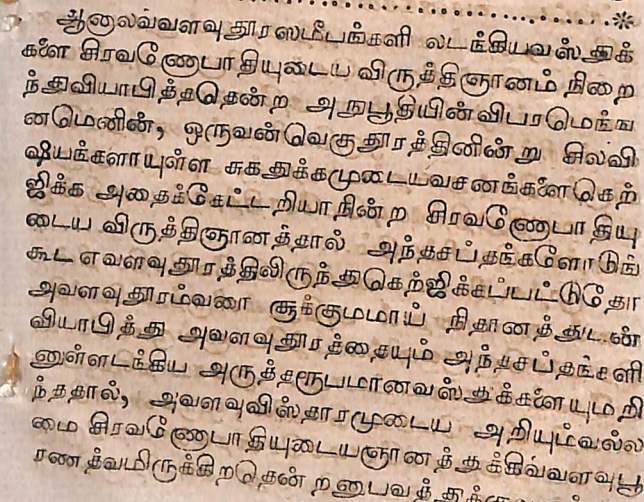 ஆனலவ்வளவு தூரஸமீபங்களி லடங்கியவஸ்துக்
களை சிரவணோபாதியுடைய விருத்திஞானம் நிறை
ந்துவியாபித்ததென்ற அநுபூதியின்விபரமெங்ங
னமெனின், ஒருவன்வெகுதூரத்தினின்று சிலவி
ஷயங்களாயுள்ள சுகதுக்கமுடையவசனங்களைகெற்
ஜிக்க அதைக்கேட்டறியாநின்ற சிரவணோபாதியு
டைய விருத்திஞானத்தால் அந்தசப்தங்களோடுங்
கூட எவளவுதூரத்திலிருந்துகெற்ஜிக்கப்பட்டுதோ
அவளவுதூரம்வரை சூக்குமமாய் நிதானத்துடன்
வியாபித்து அவளவுதூரத்தையும் அந்தசப்தங்களி
னுள்ளடங்கிய அருத்தரூபமானவஸ்துக்களையுமறி
ந்ததால், அவளவுவிஸ்தாரமுடைய அறியும்வல்ல
மை சிரவணோபாதியுடையஞானத்துக்கிவ்வளவுபூ
ரணத்வமிருக்கிறதென் றனுபவத்துக்கு